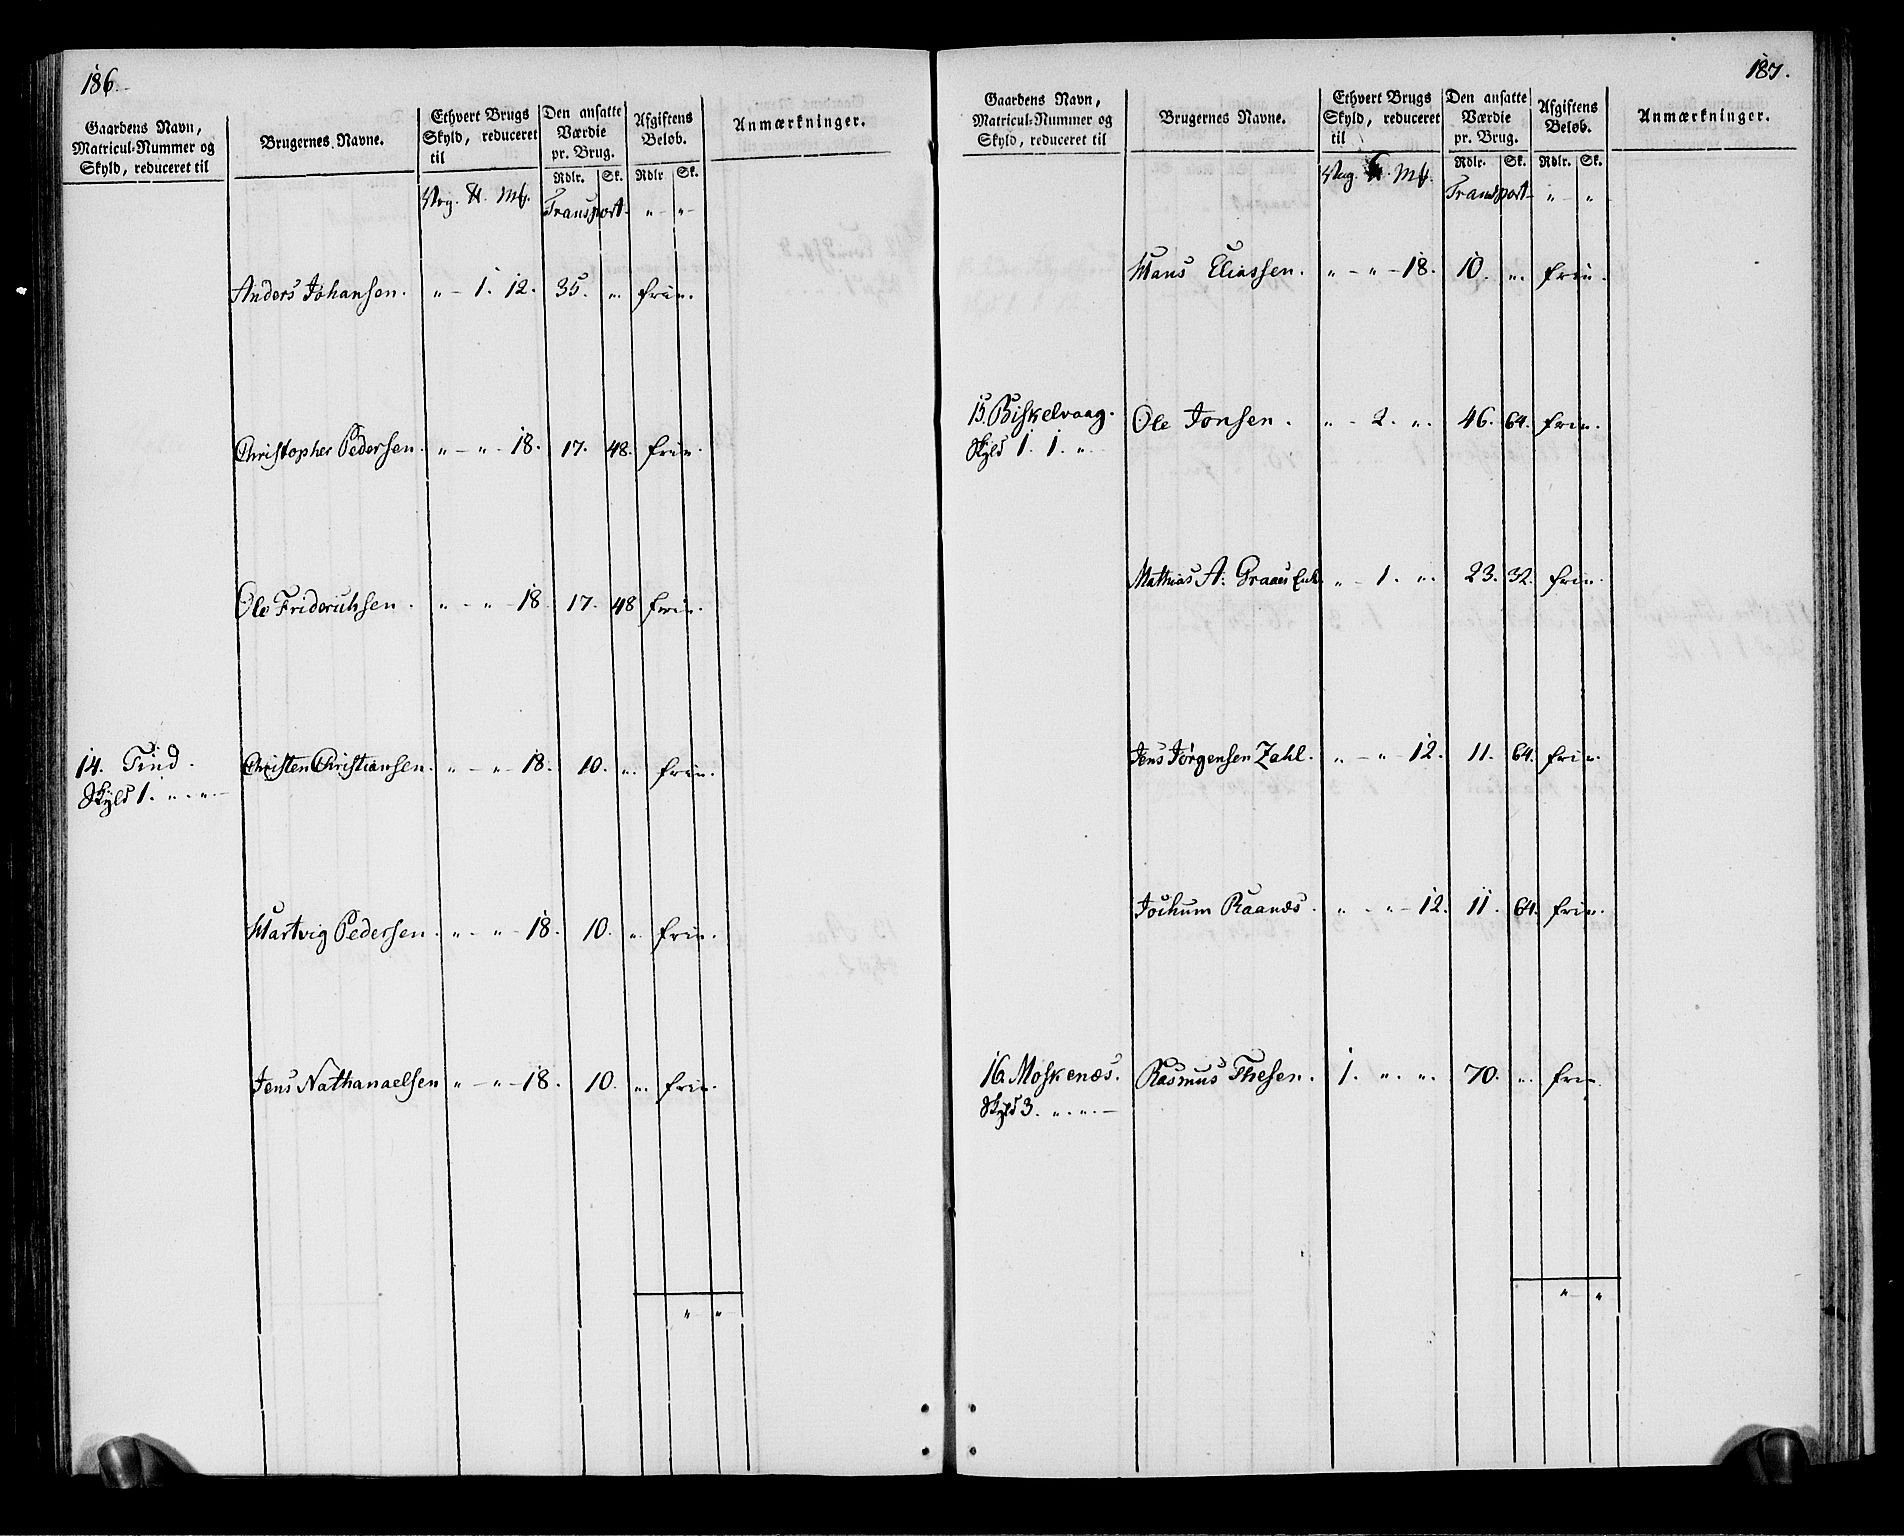 186.
Gaardens Navn, Matricul-Nummer og Skyld, reduceret til
Brugernes Navne.
Ethvert Brugs Skyld, reduceret til
Den ansatte Værdie pr. Brug.
Afgiftens Beløb.
Anmærkninger.
Rdlr. Sk. Rdlr Sk.
Vog. Mk. Transport „ „
Anders Johansen. „ 1. 12. 35. „ frie.
Christopher Pedersen. „ „ 18. 17. 48. frie.
Ole Friderichsen. „ „ 18. 17. 48 frie.
14. Tind. Christen Christiansen. „ „ 18. 10. „ frie.
Skyld 1. „ „
Hartvig Pedersen. „ „ 18. 10. „ frie.
Jens Nathanaelsen „ „ 18. 10. „ frie.
„ „
187.
Gaardens Navn, Matricul-Nummer og Skyld, reduceret til
Brugernes Navne.
Ethvert Brugs Skyld, reduceret til
Den ansatte Værdie pr. Brug.
Afgiftens Beløb.
Anmærkninger.
Rdlr. Sk. Rdlr. Sk.
Vog. Mk. Transport „ „
Hans Eliassen. „ „ 18. 10. „ frie.
15. Biskelvaag. Ole Jonsen. „ 2. „ 46. 64. frie.
Skyld 1. 1. „
Mathias A: Graaes Enke „ 1. „ 23. 32. frie.
Jens Jørgensen Zahl. „ „ 12. 11. 64. frie.
Jochum Raanes. „ „ 12. 11. 64. frie.
16. Moskenæs. Rasmus Thesen. 1. „ „ 70. „ frie.
Skyld 3. „ „
„ „